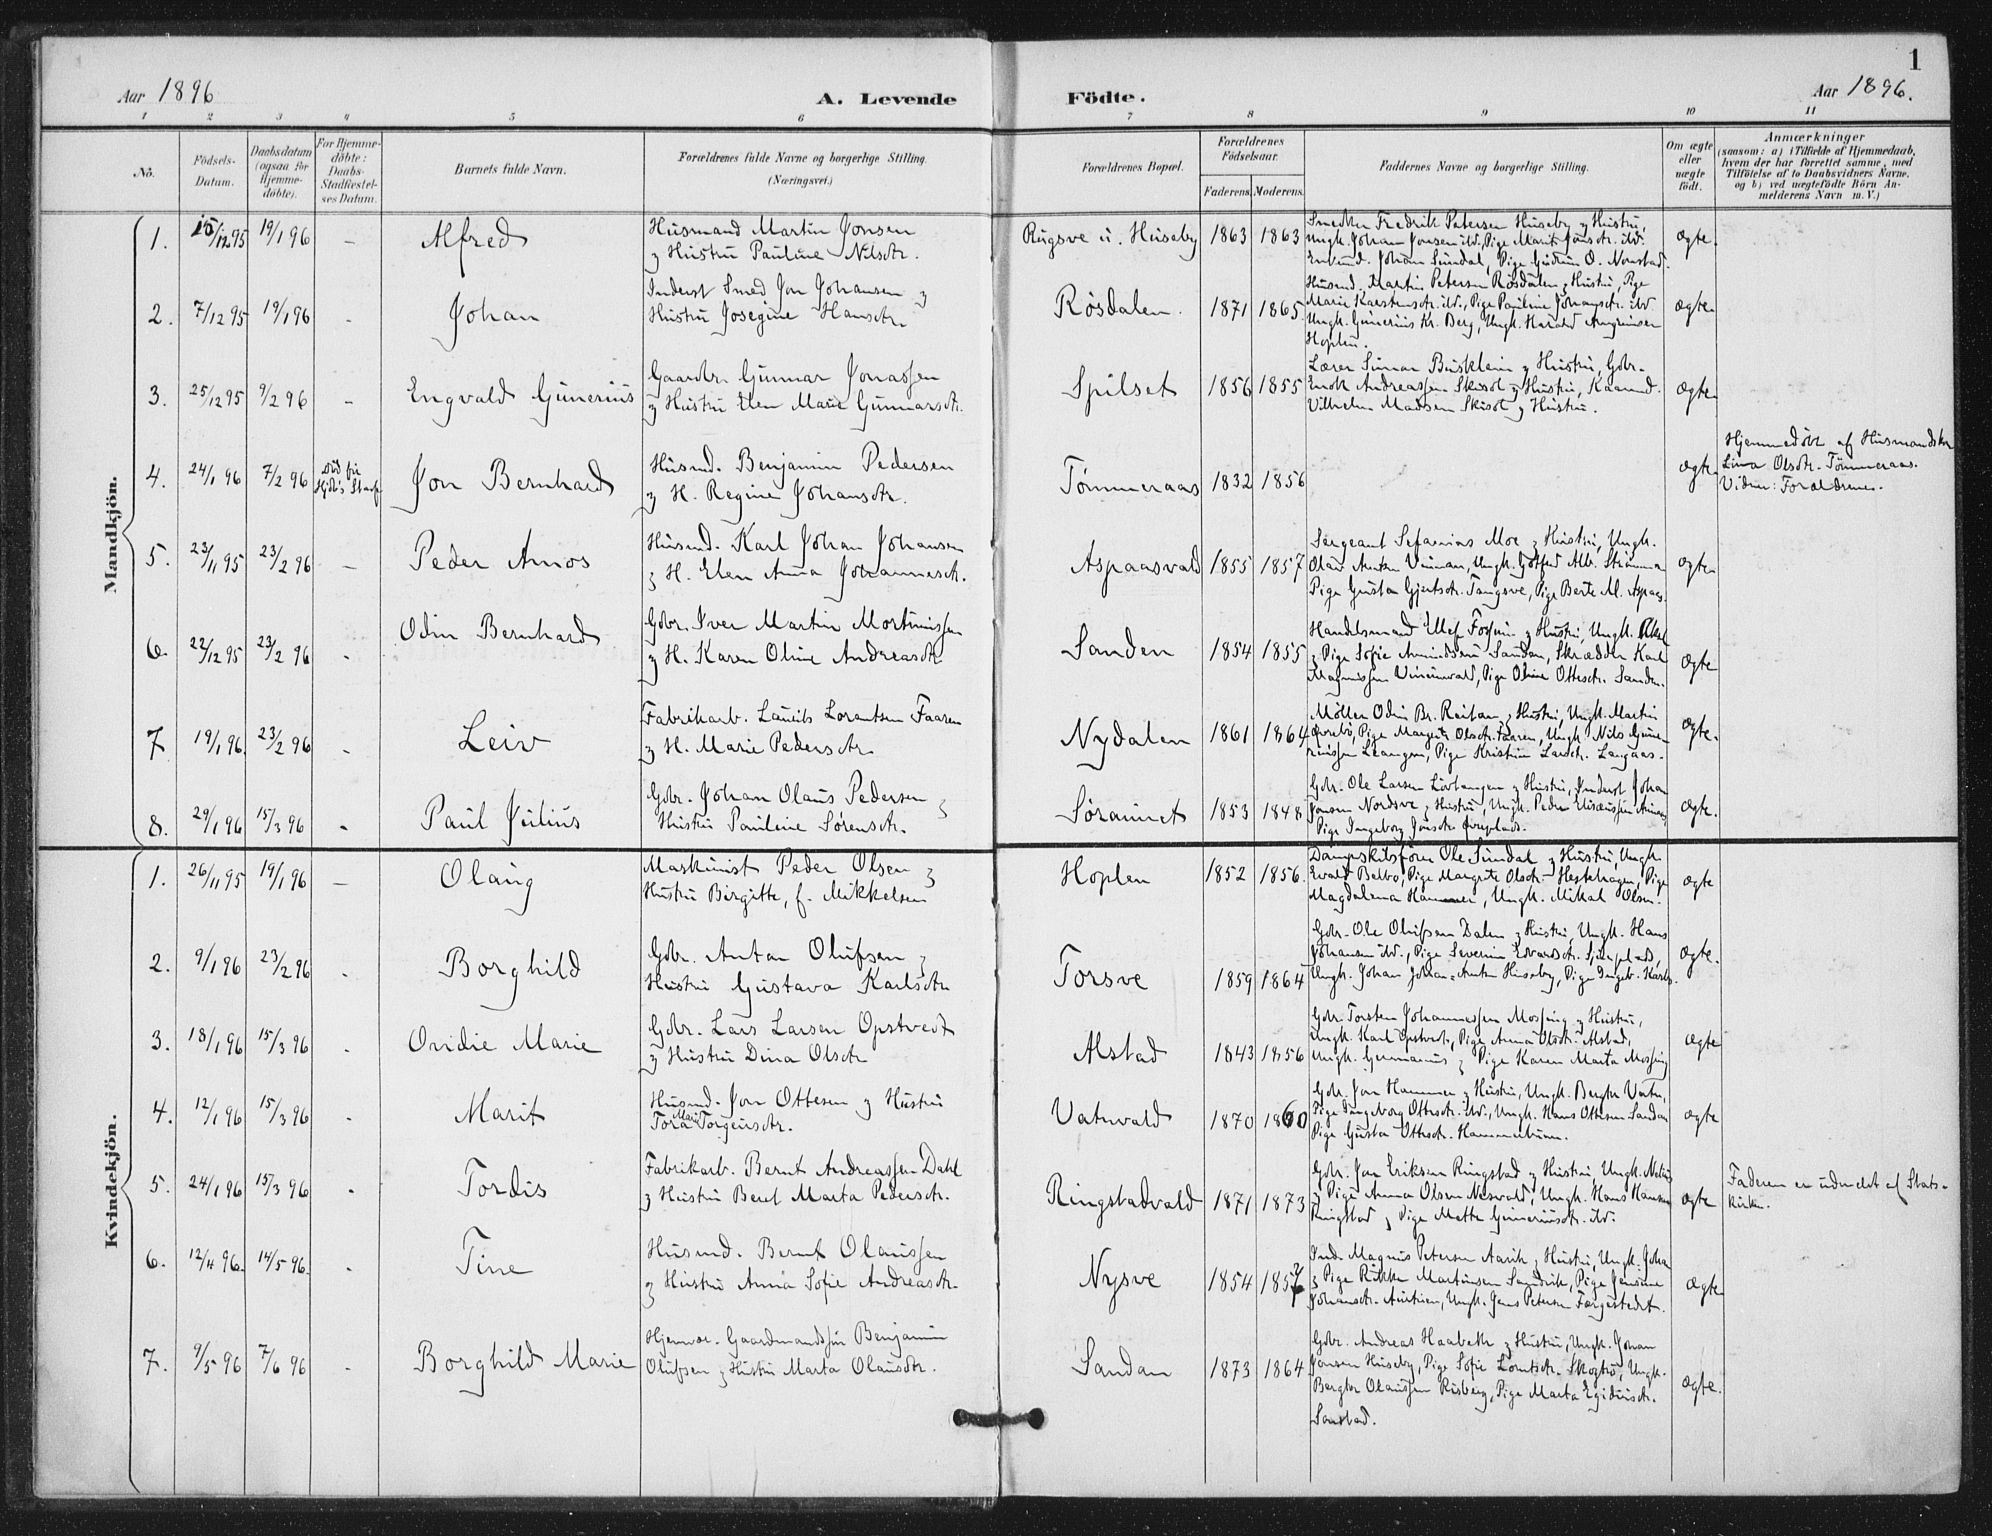 1
Aar 1896
A. Levende Födte.
Aar 1896.
1 2 3 4 5 6 7 8 9 10 11
No.
Födsels-Datum.
Daabsdatum (ogsaa for Hjemme-döbte).
For Hjemme-döbte: Daabs-Stadfæstel-ses Datum.
Barnets fulde Navn.
Forældrenes fulde Navne og borgerlige Stilling.
(Næringsvei.)
Forældrenes Bopæl.
Forældrenes Födselsaar.
Faderens. Moderens.
Faddernes Navne og borgerlige Stilling.
Om ægte eller uægte födt.
Anmærkninger
(saasom: a) i Tilfælde af Hjemmedaab,
hvem der har forrettet samme, med
Tilföielse af to Daabsvidners Navne.
og b) ved uægtefödte Börn An-
melderens Navn m. V.)
Mandkjön.
1. 15/12 95 19/1 96 - Alfred
Husmand Martin Jonsen
& Hustru Pauline Nilsdtr.
Rugsve u. Huseby 1863 1863
Smedktr Fredrik Petersen Huseby & Hustru,
Ungk. Johan Jonsen ibd., Pige Marit Jonsdtr. ibd.
Johan Sundal, Pige Gudrun O. Nonstad.
ægte.
2. 7/12 95 19/1 96 - Johan
Inderst Smed Jon Johansen &
Hustru Josegine Hansdtr.
Rösdalen. 1871 1865
Husmd. Martin Petersen Rösdalen & Hustru, Pige
Marie Karstensdtr. ibd., Pige Pauline Johansdtr. ibd.
Ungk. Gunerius Kr. Berg, Ungk. Harald Arngrimsen
Hoplen.
ægte.
3. 25/12 95 9/2 96 - Engvald Gunerius
Gaardbr. Gunnar Jonassen
& Hustru Elen Marie Gunnarsdtr.
Spilset 1856 1855
Lærer Simon Busklein & Hustru, Gdbr.
Enok Andreassen & Hustru,
Vilhelm Madsen & Hustru.
ægte
4. 24/1 96 7/2 96 Jon Bernhard
Husmd. Benjamin Pedersen
& H. Regine Johansdtr.
Tömmeraas 1832 1856
ægte
Hjemmedöbt af Husmandsk.
Lina Olsdtr. Tömmeraas.
Vidner: Forældrene.
5. 23/11 95 23/2 96 - Peder Amos
Husmd. Karl Johan Johansen
& H. Elen Anna Johannesdtr.
Aspaasvald 1855 1857
Sergeant Sefanias Moe & Hustru, Ungk.
Olav Anton, Ungk. Gotfred Alb.
Pige Gusta Gjertsdtr. Tangsve, Pige Berte M. Aspaas.
ægte
6. 22/12 95 23/2 96 - Odin Bernhard
Gdbr. Iver Martin Mortinussen
& H. Karen Oline Andreasdtr.
Sanden 1854 1855
Handelsmand & Hustru, Ungk.
& Pige Sofie Amundsen Sandan, Skrædder Karl
Magnussen, Pige Oline Ottesdtr. Sanden.
ægte
7. 19/1 96 23/2 96 - Leiv
Fabrikarb. Laurits Lorentsen Faaren
& H. Marie Pedersdtr.
Nydalen 1861 1864
Möller Odin Br. Reitan & Hustru, Ungk. Martin
Pige Margrete Olsdtr. Faaren, Ungk. Nils Gune-
riussen Leangen, Pige Kristine Larsdtr. Langaas.
ægte.
8. 29/1 96 15/3 96 - Paul Julius
Gdbr. Johan Olaus Pedersen &
Hustru Pauline Sörensdtr.
1853 1848
Gdbr. Ole Larsen & Hustru, Inderst Johan
Jonsen Nordsve & Hustru, Ungk. Peder
Pige Ingeborg Jonsdtr.
ægte.
Kvindekjön.
1. 26/11 95 19/1 96 - Olaug
Maskinist Peder Olsen &
Hustru Birgitte, f. Mikkelsen
Hoplen 1852 1856.
Dampskibsförer Ole Sundal & Hustru, Ungk.
Evald Belbo, Pige Margrete Olsdtr. Hestehagen, Pige
Magdalena Hammer, Ungk. Mikal Olsen.
ægte
2. 9/1 96 23/2 96 - Borghild
Gdbr. Anton Olufsen &
Hustru Gustava Karlsdtr
Torsve 1859 1864
Gdbr. Ole Olufsen Dalen & Hustru, Ungk. Hans
Johansen ibd., Pige Severine Edvardsdtr.
Ungk. Johan Johan-Anton Huseby, Pige Ingeb. Karls.
ægte.
3. 18/1 96 15/3 96 - Ovidie Marie
Gdbr. Lars Larsen Opstvedt
& Hustru Dina Olsdtr
Alstad 1843 1856
Gdbr. Torsten Johannessen Mossing & Hustru,
Ungk. Karl Opstvedt, Pige Anna Olsdtr. Alstad,
Ungk. Germanus & Pige Karen Marta Mossing
ægte
4. 12/1 96 15/3 96 - Marit
Husmd. Jon Ottesen & Hustru
Tora Marie Torgeirsdtr.
Vatnvald 1870 1860
Gdbr. Jon Hammer & Hustru, Ungk. Bergtr Vatn,
Pige Ingeborg Ottesdtr. ibd., Ungk. Hans Ottesen Sandan
Pige Gusta Ottesdtr. Hammerbrum.
ægte
5. 24/1 96 15/3 96 - Tordis
Fabrikarb. Bernt Andreassen Dahl
& Hustru Beret Marta Pedersdtr.
Ringstadvald 1871 1873
Gdbr. Jon Eriksen Ringstad & Hustru, Ungk.
& Pige Anna Olsen Nesvald, Ungk. Hans Hansen
Ringstad & Pige Mette Guneriusdtr. ibd.
ægte
Faderen er udmeldt af Stats-
kirken.
6. 12/4 96. 14/5 96. - Tine
Husmd. Bernt Olaussen
& Hustru Anna Sofie Andreasdtr.
Nysve 1854
Ind. Magnus Petersen Aarik & Hustru, Ungk. Joha
& Pige Rikke Martinsen Sandvik, Pige Jensine
Johansdtr., Ungk. Jens Petersen Færgestedet.
ægte
7. 9/5 96 7/6 96 - Borghild Marie
Gaardmandssön Benjamin
Olufsen & Hustru Marta Olausdtr.
Sandan 1873 1864
Gdbr. Andreas Haabeth & Hustru, Ungk. Johan
Jonsen Huseby, Pige Sofie Lorntsdtr. Skogtrö, Ungk.
Bergtor Olaussen Risberg, Pige Marta Egidiusdtr.
Saxstad.
ægte.